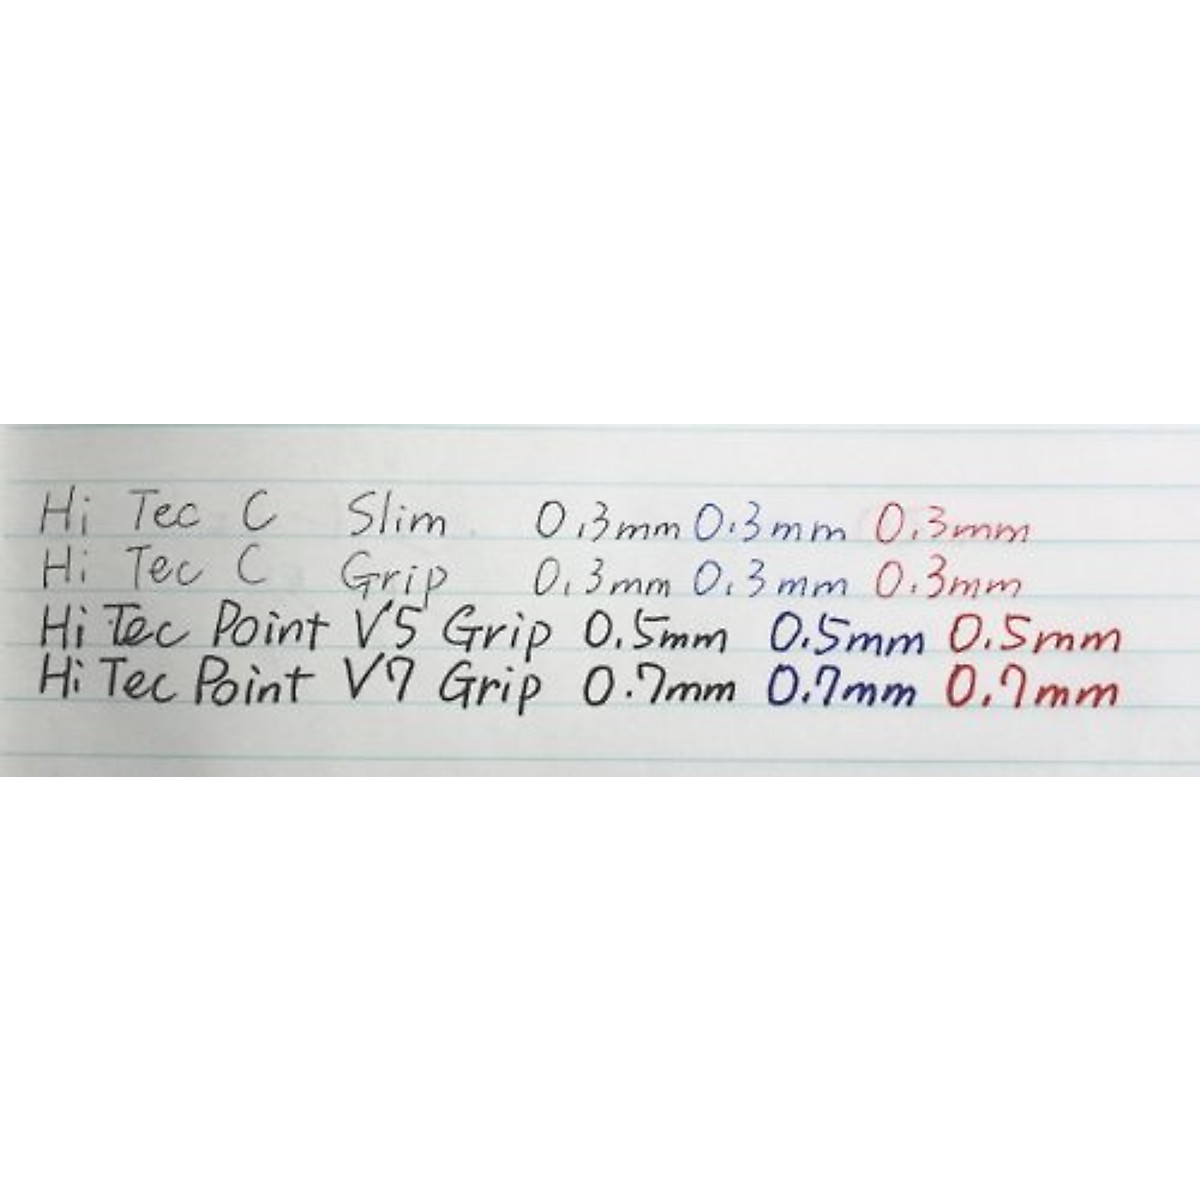 Hi Tec C Slim 0.3mm 0.3mm 0.3mm
Hi Tec C Grip 0.3mm 0.3mm 0.3mm
Hi Tec Point V5 Grip 0.5mm 0.5mm 0.5mm
Hi Tec Point V7 Grip 0.7mm 0.7mm 0.7mm